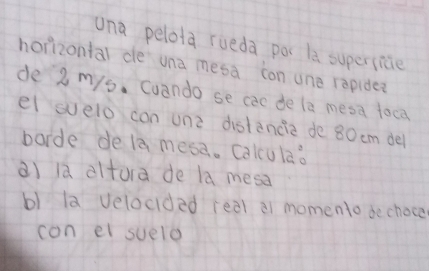 Una pelota rueda por la superficie
horizontal de una mesa con una rapidez
de 2 m/s. Cuando se cae de la mesa toca
el suelo con una distancia de 80 cm del
borde de la mesa. Calcula:
a) la altura de la mesa
b) la velocidad real al momento de chocar
con el suelo